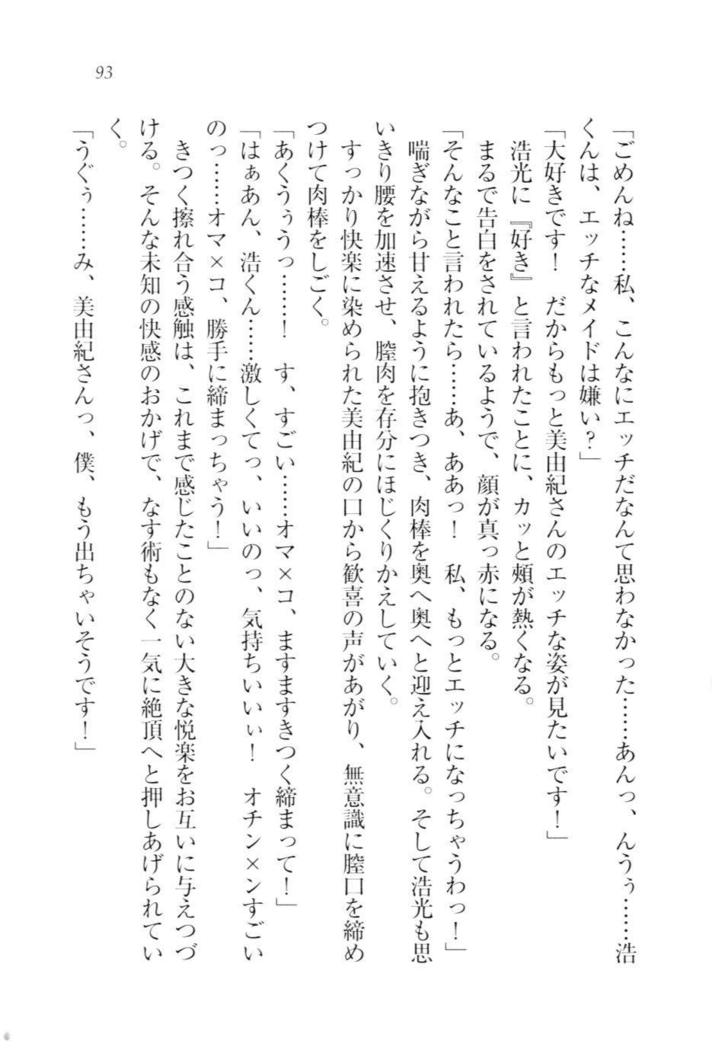 93
「ごめんね……私、こんなにエッチだなんて思わなかった……あんっ、んうぅ……浩
くんは、エッチなメイドは嫌い？」
「大好きです！　だからもっと美由紀さんのエッチな姿が見たいです！」
浩光に『好き』と言われたことに、カッと頬が熱くなる。
まるで告白をされているようで、顔が真っ赤になる。
「そんなこと言われたら……あ、ああっ！　私、もっとエッチになっちゃうわっ！」
喘ぎながら甘えるように抱きつき、肉棒を奥へ奥へと迎え入れる。そして浩光も思
いきり腰を加速させ、膣肉を存分にほじくりかえしていく。
すっかり快楽に染められた美由紀の口から歓喜の声があがり、無意識に膣口を締め
つけて肉棒をしごく。
「あくうぅうっ……！　す、すごい……オマ×コ、ますますきつく締まって！」
「はぁあん、浩くん……激しくてっ、いいのっ、気持ちいいぃ！　オチン×ンすごい
のっ……オマ×コ、勝手に締まっちゃう！」
きつく擦れ合う感触は、これまで感じたことのない大きな悦楽をお互いに与えつづ
ける。そんな未知の快感のおかげで、なす術もなく一気に絶頂へと押しあげられてい
く。
「うぐぅ……み、美由紀さんっ、僕、もう出ちゃいそうです！」